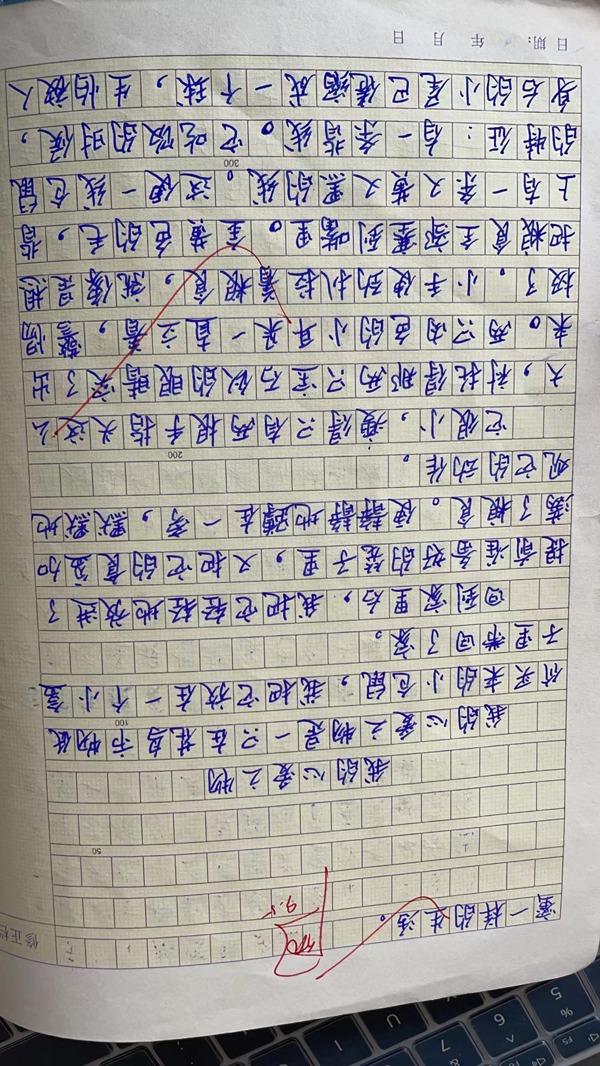 修正栏
蜜一样的生活。
9.5
50
我的心爱之物
我的心爱之物是一只在花鸟市场低
100
价买来的小仓鼠，我把它放在一个小盒
子里带回了家。
回到家里后，我把它轻轻地放进了
提前准备好的笼子里，又把它的食盆加
满了粮食。便静静地蹲在一旁，默默地
观它的动作。
200
它很小，瘦得只有两根手指头这么
大，衬托得那两只宝石似的眼睛突了出
来。两只肉色的小耳朵一直立着，警惕
极了。小手使劲扒拉着粮食，就像是想
把粮食全部塞到嘴里。金黄色的毛，背
上有一条又黄又黑的线。这便一线仓鼠
300
的特征：有一条背线。它吃饭的时候，
身后的小尾巴卷缩成一个球，生怕被人
日期: 年 月 日